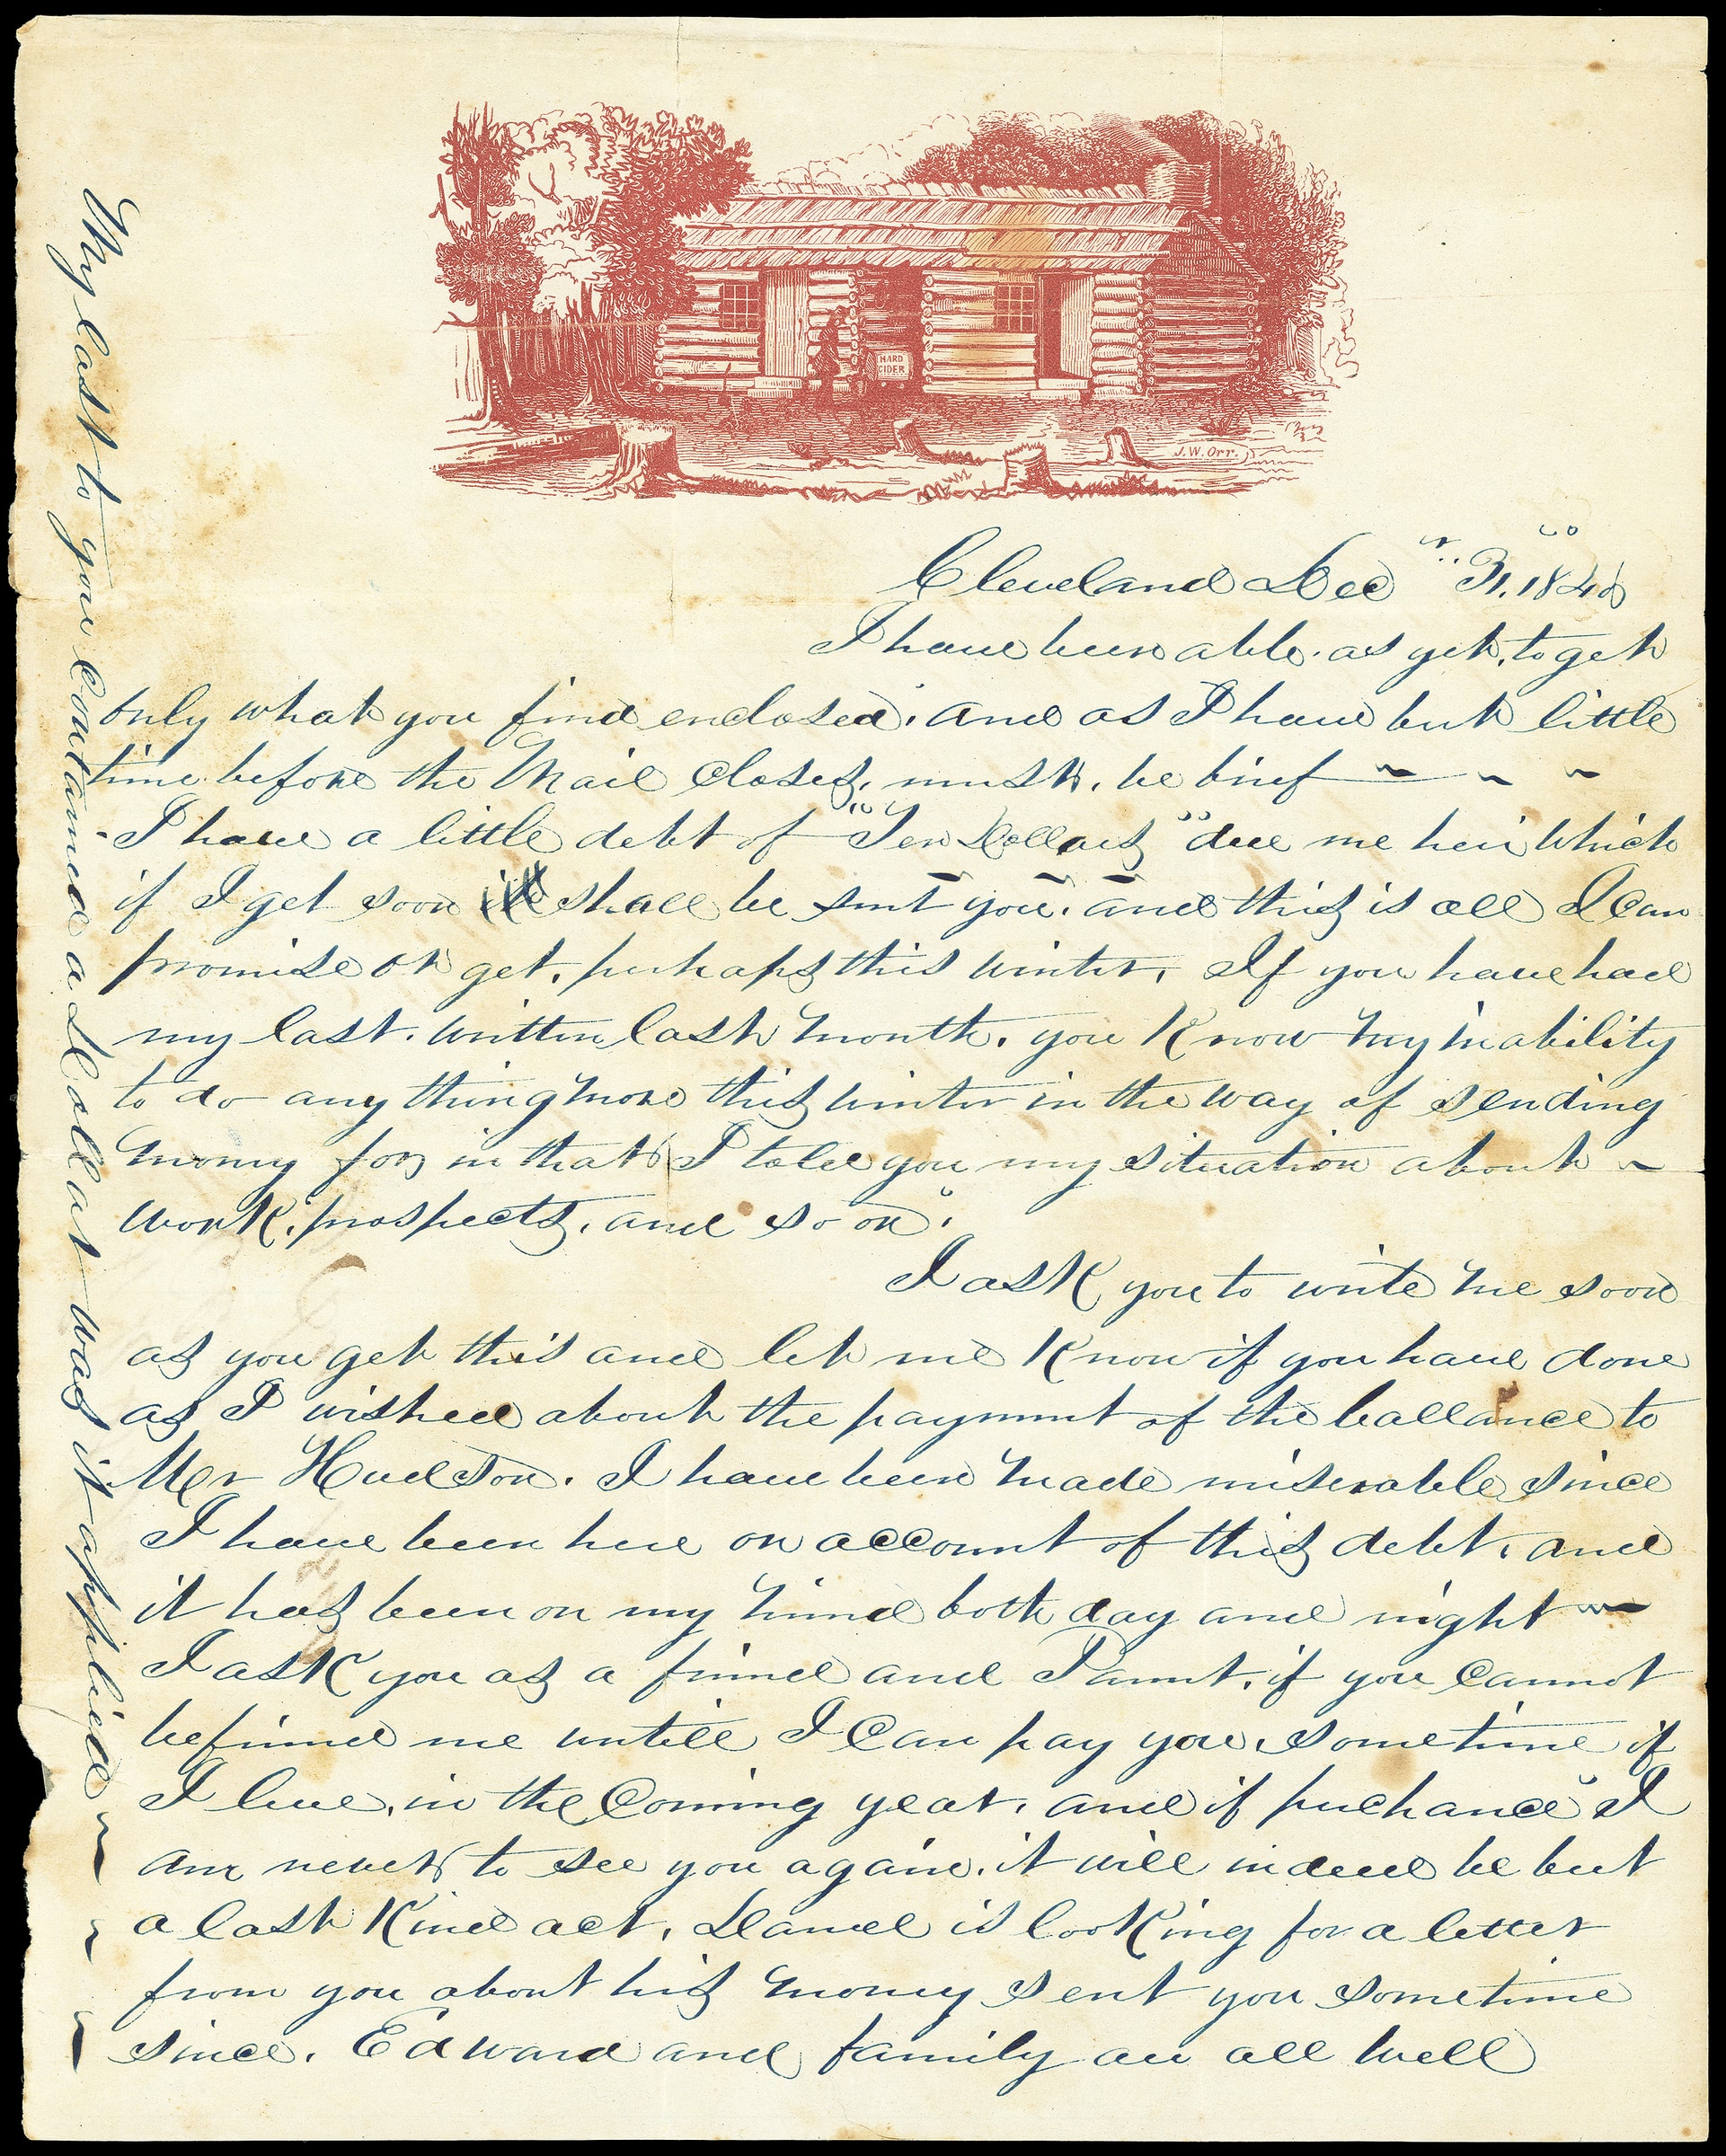 HARD
CIDER
J.W. Orr.
Cleveland Dec 31. 1840
I have been able as yet, to get
only what you find enclosed, and as I have but little
time before the Mail Closes, must, be brief
- I have a little debt of "Ten Dollars" due me here which
if I get soon it shall be sent you, and this is all I Can
promise or get, perhaps this winter, If you have had
my last, written last month, you Know my inability
to do any thing more this winter in the way of sending
money for in that I told you my situation about
work, prospects, and so on.
I ask you to write me soon
as you get this and let me Know if you have done
as I wished about the payment of the ballance to
Mer Hudson. I have been made miserable since
I have been here on account of this debt, and
it has been on my mind both day and night
I ask you as a friend and Parent, if you Cannot
befriend me untill I Can pay you, sometime if
I live, in the Coming year, and if perchance I
am never to see you again, it will indeed be but
a last Kind act, Daniel is looKing for a letter
from you about his money sent you sometime
since. Edward and family are all well
My last to you Contained a Dollar was it applied